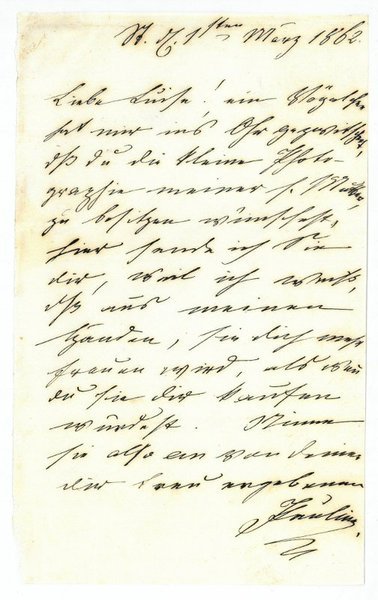 St. d. 1sten März 1862.
Liebe Luise! ein Vögelchen
hat mir ins Ohr gezwitschert,
dß du die kleine Photo-
graphie meiner s. Mutter,
zu besitzen wünschest,
hier sende ich Sie
dir, weil ich weiß,
dß aus meinen
Händen, sie dich mehr
freuen wird, als wen
du sie dir kaufen
würdest. Nimm
sie also an von deiner
dir treu ergebenen
Pauline.